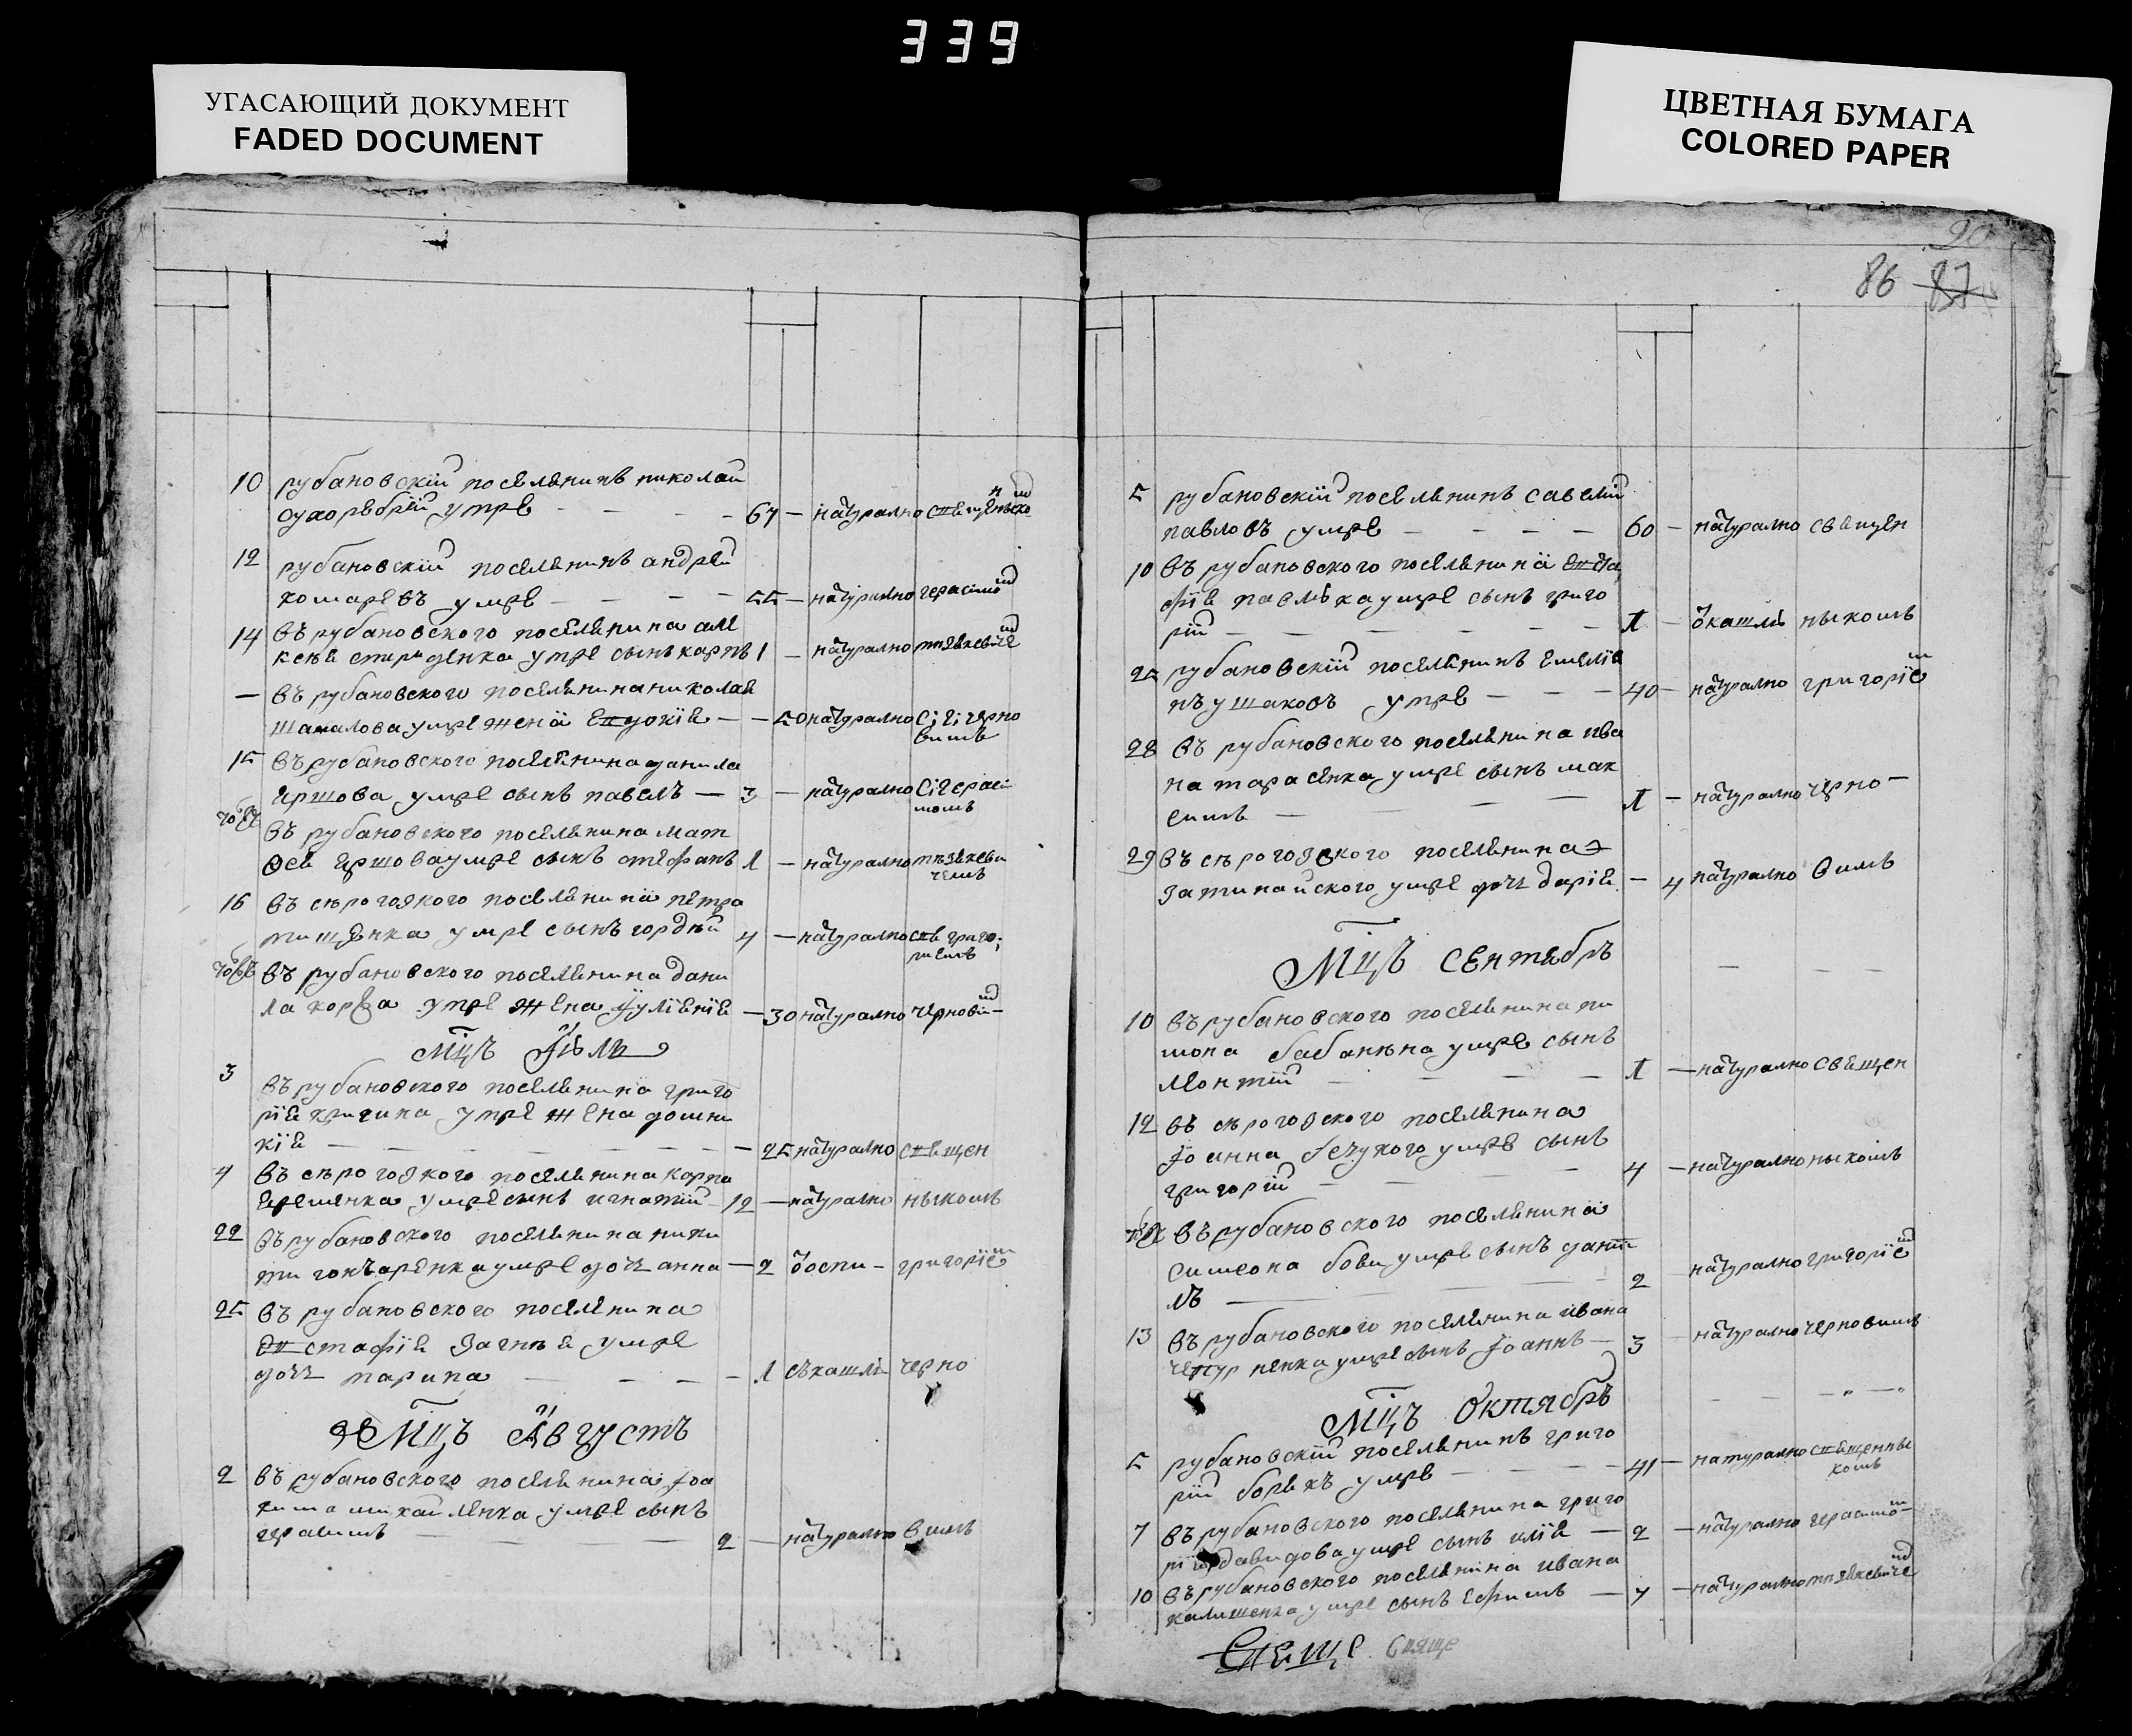 339
УГАСАЮЩИЙ ДОКУМЕНТ
FADED DOCUMENT
ЦВЕТНАЯ БУМАГА
COLORED PAPER
90
86 87
10 рубановскїй поселянинъ николай
сухоребрїй умре 67 натурално
12 рубановскїй поселянинъ андрей
комаревъ умре 55 натурално герасимо
14 въ рубановского поселянина але
ксѣя спириденка умре сынъ карпъ 1 натурално
въ рубановского поселянина николая
шамалова умре жена евдокїя 50 натурално чирно
вимъ
15 въ рубановского поселянина данила
ершова умре сынъ павелъ 3 натурално гераси
момъ
въ рубановского поселянина мат
ѳея ершова умре сынъ стефанъ 1 натурално
чемъ
16 въ сѣрогозкого поселянина петра
тищенка умре сынъ гордѣй 4 натурално свя григо
риемъ
въ рубановского поселянина дани
ла корва умре жена їулїянїя 30 натурално
мцъ їюль
3 въ рубановского поселянина григо
рїя кригина умре жена домни
кїя 25 натурално священ
4 въ сѣрогозкого поселянина карпа
еременка умре сынъ игнатїй 12 натурално никомъ
22 въ рубановского поселянина ники
ти гончаренка умре дочъ анна 2 ѿ оспи григорїе
25 въ рубановского поселянина
евстафїя загнѣя умре
дочъ марина 1 съ кашля черно
мцъ августъ
2 въ рубановского поселянина їоа
кима михайленка умре сынъ
герасимъ 2 натурално вимъ
5 рубановскїй поселянинъ савелїй
павловъ умре 60 натурално священ
10 въ рубановского поселянина евста
фїя павлѣка умре сынъ григо
рїй 1 ѿ кашля никомъ
25 рубановскїй поселянинъ емелїя
нъ ушаковъ умре 40 натурално григорїе
28 въ рубановского поселянина ива
на тарасенка умре сынъ мак
симъ 1 натурално черно
29 въ сѣрогозского поселянина
затинайского умре дочъ дарїя 4 натурално вимъ
мцъ сентябръ
10 въ рубановского поселянина ти
мона бабанѣна умре сынъ
леонтїй 1 натурално священ
12 въ сѣрогозского поселянина
їоанна безукого умре сынъ
григорїй 4 натурално никомъ
въ рубановского поселянина
симеона бови умре сынъ данїи
лъ 2 натурално григорїе
13 въ рубановского поселянина ивана
четурненка умре сынъ їоаннъ 3 натурално черновимъ
мцъ октябръ
5 рубановскїй поселянинъ григо
рїй борякъ умре 41 натурално священны
комъ
7 въ рубановского поселянина григо
рїя давидова умре сынъ илїя 2 натурално герасимо
10 въ рубановского поселянина ивана
калишенка умре сынъ ефимъ 7 натурално
Свяще Свяще